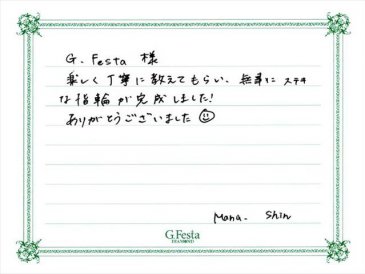 G. Festa 様
楽しく丁寧に教えてもらい、無事に ステキ
な指輪が完成しました!
ありがとうございました
Mana. Shin
G.Festa
DIAMOND